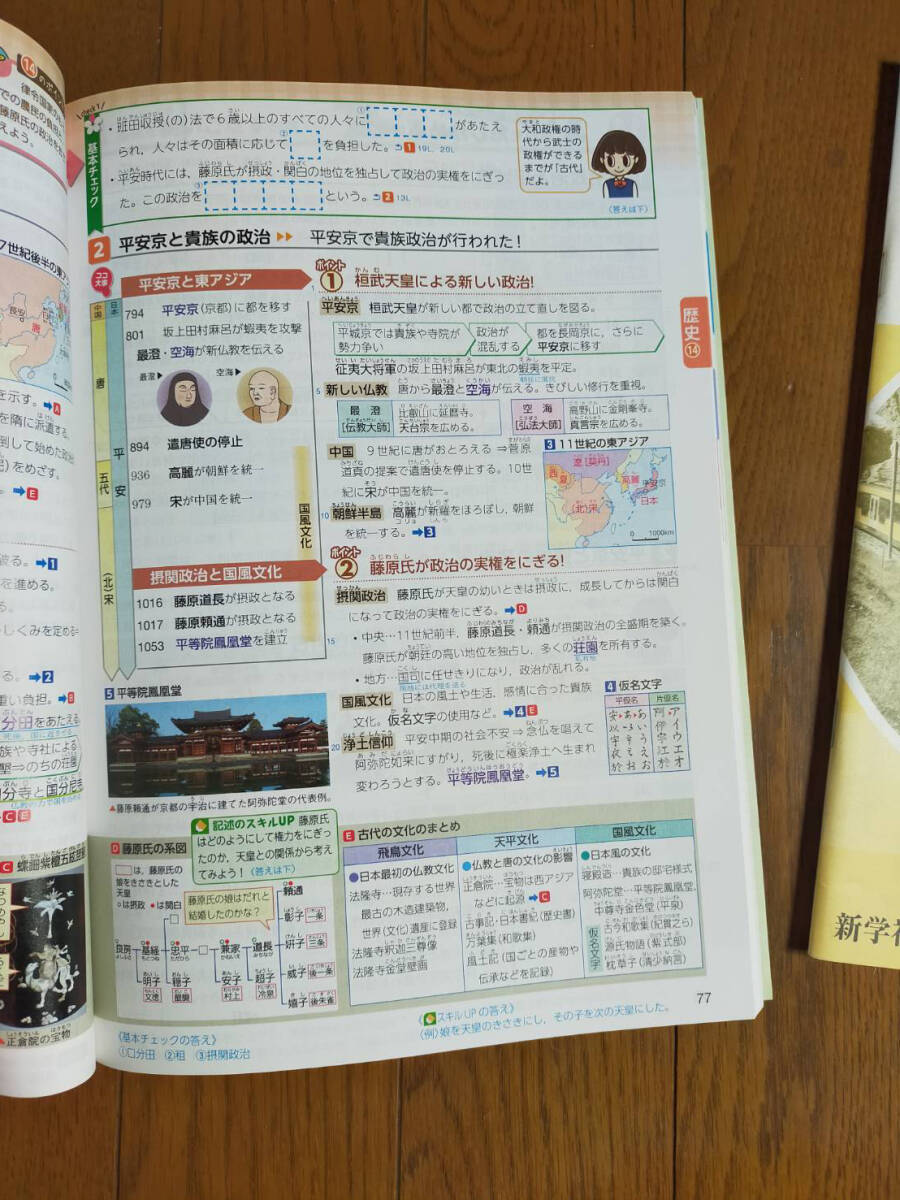 ⑭のポイント
律令国家の
での農民の負担と
藤原氏の政治をお
えよう。
7世紀後半の東ア
長安
唐
を示す。➡A
を隋に派遣する。
倒して始めた政治
をめざす。
➡E
破る。➡1
を進める。
しくみを定める
る。➡2
重い負担。➡B
口分田をあたえる
族や寺社による
墾⇒のちの荘園
分寺と国分尼寺
➡C E
C 螺鈿紫檀五絃琵琶
▲正倉院の宝物
check1
基本チェック
・班田収授(の)法で6歳以上のすべての人々に①□□□があたえ
られ，人々はその面積に応じて②□を負担した。1 19L，20L
・平安時代には，藤原氏が摂政・関白の地位を独占して政治の実権をにぎっ
た。この政治を③□□□□という。2 13L
大和政権の時
代から武士の
政権ができる
までが「古代」
だよ。
(答えは下)
2 平安京と貴族の政治 ▶▶ 平安京で貴族政治が行われた！
ココ大事
平安京と東アジア
中国
日本
唐
五代
(北)宋
平安
794 平安京(京都)に都を移す
801 坂上田村麻呂が蝦夷を攻撃
最澄・空海が新仏教を伝える
最澄▶
空海▶
894 遣唐使の停止
936 高麗が朝鮮を統一
979 宋が中国を統一
国風文化
摂関政治と国風文化
1016 藤原道長が摂政となる
1017 藤原頼通が摂政となる
1053 平等院鳳凰堂を建立
ポイント① 桓武天皇による新しい政治！
平安京 桓武天皇が新しい都で政治の立て直しを図る。
平城京では貴族や寺院が
勢力争い
政治が
混乱する
都を長岡京に，さらに
平安京に移す
征夷大将軍の坂上田村麻呂が東北の蝦夷を平定。
5 新しい仏教 唐から最澄と空海が伝える。きびしい修行を重視。
最澄
[伝教大師]
比叡山に延暦寺。
天台宗を広める。
空海
[弘法大師]
高野山に金剛峯寺。
真言宗を広める。
中国 9世紀に唐がおとろえる⇒菅原
道真の提案で遣唐使を停止する。10世
紀に宋が中国を統一。
10 朝鮮半島 高麗が新羅をほろぼし，朝鮮
を統一する。➡3
3 11世紀の東アジア
遼[契丹]
西夏
高麗
平安京
日本
(北)宋
0 1000km
ポイント② 藤原氏が政治の実権をにぎる！
摂関政治 藤原氏が天皇の幼いときは摂政に，成長してからは関白
になって政治の実権をにぎる。➡D
15 ・中央…11世紀前半，藤原道長・頼通が摂関政治の全盛期を築く。
藤原氏が朝廷の高い地位を独占し，多くの荘園を所有する。
・地方…国司に任せきりになり，政治が乱れる。
国風文化 日本の風土や生活，感情に合った貴族
文化。仮名文字の使用など。➡4 E
20 浄土信仰 平安中期の社会不安⇒念仏を唱えて
阿弥陀如来にすがり，死後に極楽浄土へ生まれ
変わろうとする。平等院鳳凰堂。➡5
4 仮名文字
平仮名 片仮名
安 あ 阿 ア
以 い 伊 イ
宇 う 宇 ウ
衣 え 江 エ
於 お 於 オ
5 平等院鳳凰堂
▲藤原頼通が京都の宇治に建てた阿弥陀堂の代表例。
記述のスキルUP 藤原氏
はどのようにして権力をにぎっ
たのか，天皇との関係から考え
てみよう！(答えは下)
D 藤原氏の系図
□は，藤原氏の
娘をきさきとした
天皇
○は摂政 ●は関白
藤原氏の娘はだれと
結婚したのかな？
良房 基経 忠平 兼家 道長 頼通
彰子 一条
妍子 三条
威子 後一条
嬉子 後朱雀
明子 穏子 安子 超子
文徳 醍醐 村上 冷泉
E 古代の文化のまとめ
飛鳥文化
●日本最初の仏教文化
法隆寺…現存する世界
最古の木造建築物，
世界(文化)遺産に登録
法隆寺釈迦三尊像
法隆寺金堂壁画
天平文化
●仏教と唐の文化の影響
正倉院…宝物は西アジア
などに起源➡C
古事記・日本書紀(歴史書)
万葉集(和歌集)
風土記(国ごとの産物や
伝承などを記録)
国風文化
●日本風の文化
寝殿造…貴族の邸宅様式
阿弥陀堂…平等院鳳凰堂，
中尊寺金色堂(平泉)
仮名文字
古今和歌集(紀貫之ら)
源氏物語(紫式部)
枕草子(清少納言)
77
《基本チェックの答え》
①口分田 ②租 ③摂関政治
《スキルUPの答え》
(例)娘を天皇のきさきにし，その子を次の天皇にした。
歴史⑭
新学社